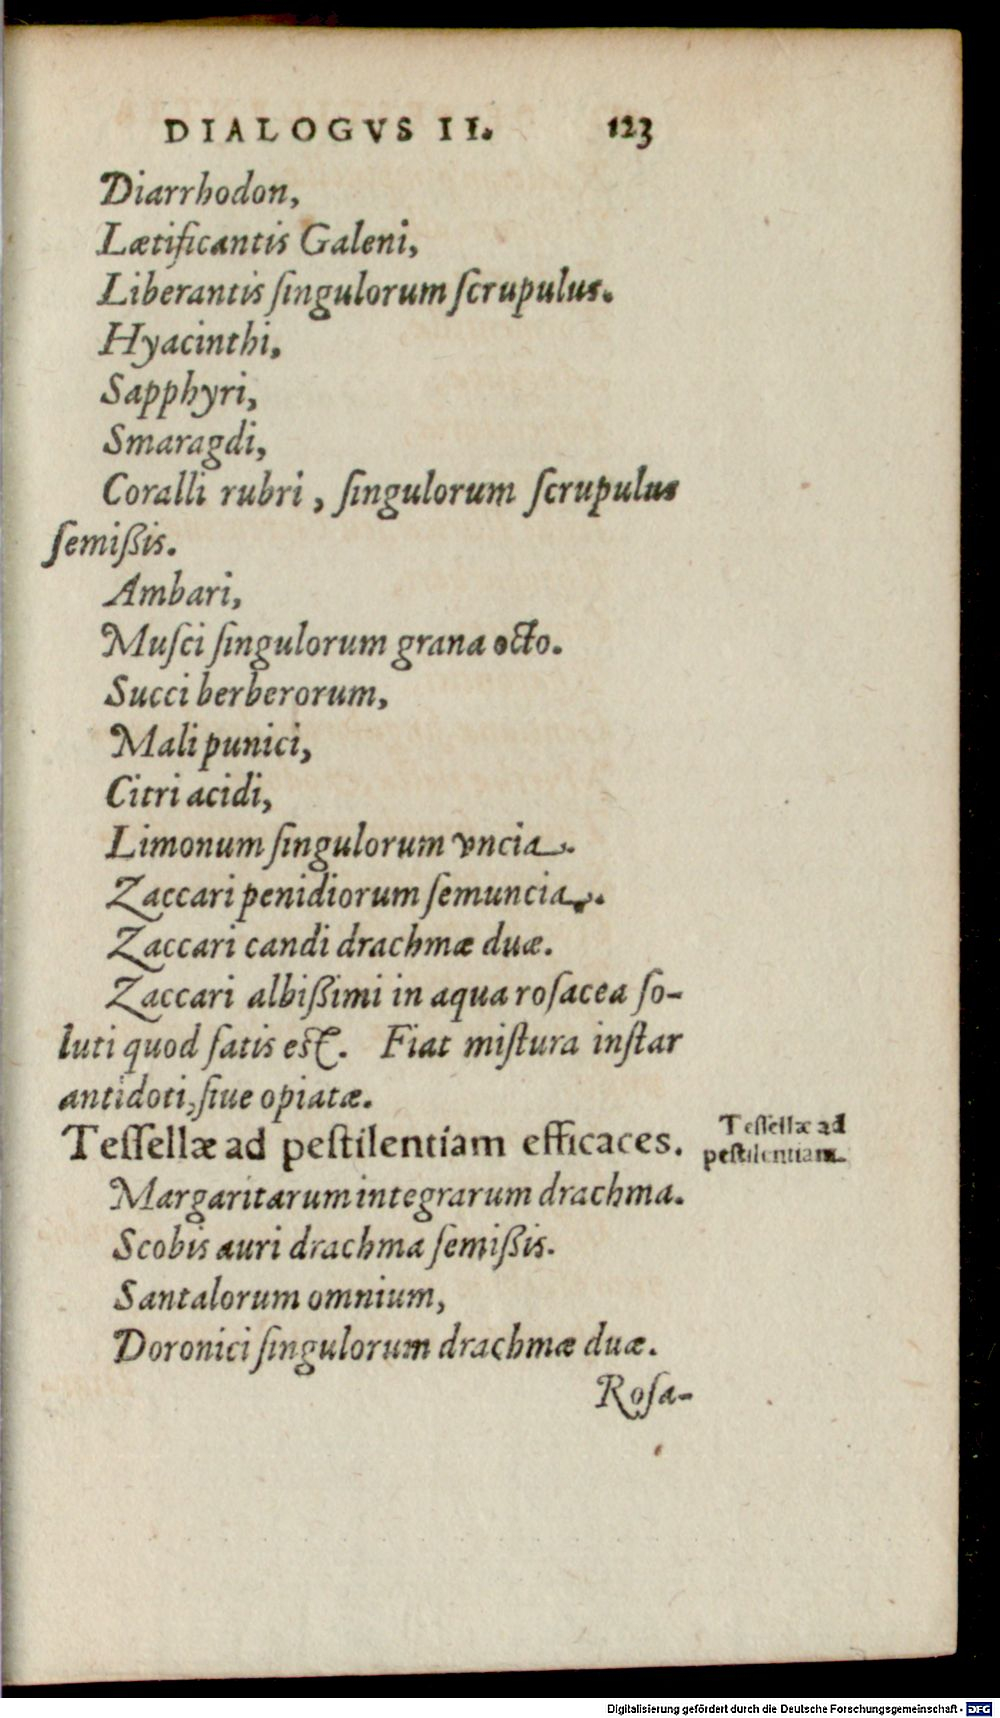 DIALOGVS II. 123
Diarrhodon,
Lætificantis Galeni,
Liberantis ſingulorum ſcrupulus.
Hyacinthi,
Sapphyri,
Smaragdi,
Coralli rubri, ſingulorum ſcrupulus
ſemißis.
Ambari,
Muſci ſingulorum grana octo.
Succi berberorum,
Mali punici,
Citri acidi,
Limonum ſingulorum vncia.
Zaccari penidiorum ſemuncia.
Zaccari candi drachmæ duæ.
Zaccari albißimi in aqua roſacea ſo-
luti quod ſatis eſt. Fiat miſtura inſtar
antidoti, ſiue opiatæ.
Teſſellæ ad peſtilentiam efficaces.
Teſſellæ ad
peſtilentiam.
Margaritarum integrarum drachma.
Scobis auri drachma ſemißis.
Santalorum omnium,
Doronici ſingulorum drachmæ duæ.
Roſa-
Digitalisierung gefördert durch die Deutsche Forschungsgemeinschaft - DFG